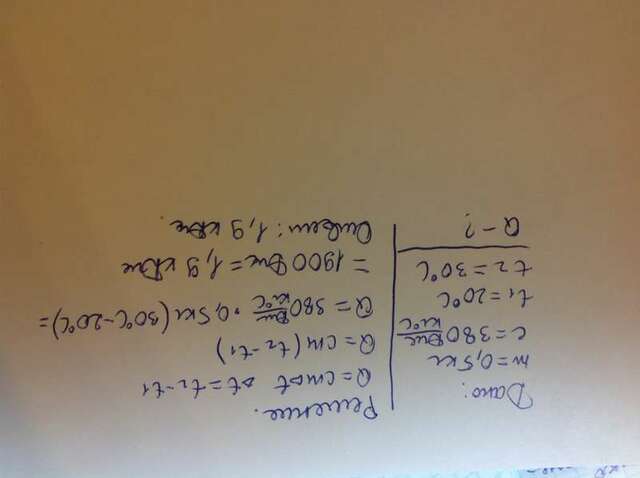 Дано:
m=0,5кг
c=380 Дж/кг°C
t1=20°C
t2=30°C
Q-?
Решение.
Q=cmΔt Δt=t2-t1
Q=cm(t2-t1)
Q=380 Дж/кг°C · 0,5кг(30°C-20°C)=
=1900Дж=1,9 кДж
Ответ: 1,9 кДж.